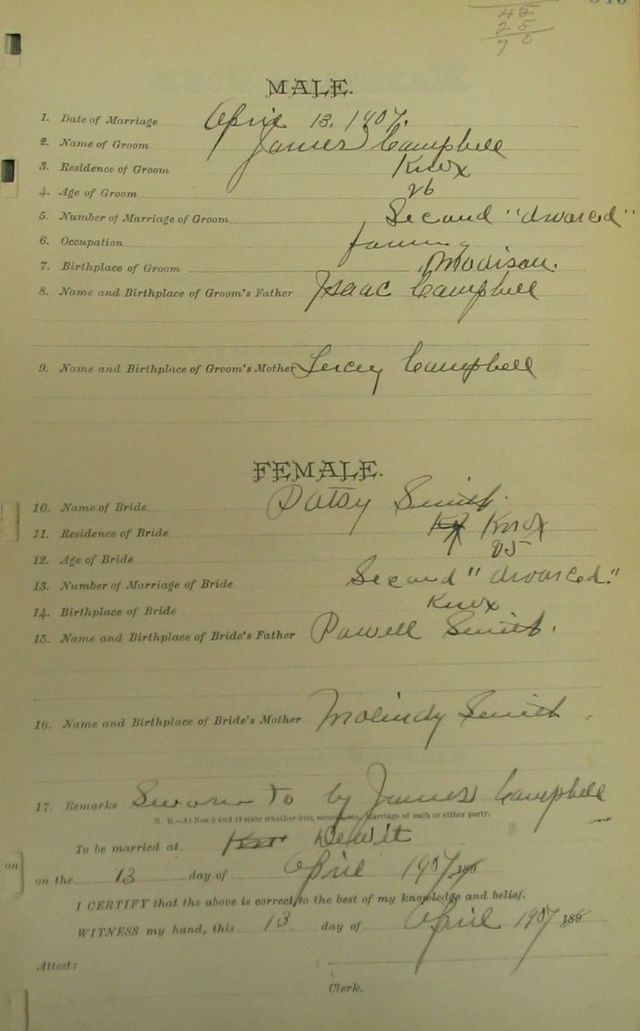 42
25
70
MALE.
1. Date of Marriage April 13. 1907.
2. Name of Groom James Campbell
3. Residence of Groom Knox
4. Age of Groom 26
5. Number of Marriage of Groom Second "divorced"
6. Occupation farming
7. Birthplace of Groom Madison.
8. Name and Birthplace of Groom's Father Isaac Campbell
9. Name and Birthplace of Groom's Mother Lucey Campbell
FEMALE.
10. Name of Bride Patsy Smith.
11. Residence of Bride Knox
12. Age of Bride 25
13. Number of Marriage of Bride Second "divorced."
14. Birthplace of Bride Knox
15. Name and Birthplace of Bride's Father Powell Smith.
16. Name and Birthplace of Bride's Mother Molindy Smith
17. Remarks Sworn to by James Campbell
N. B.—At Nos 5 and 13 state whether first, second, etc., Marriage of each or either party.
To be married at Knox Dewit
on the 13 day of April 1907 190
I CERTIFY that the above is correct to the best of my knowledge and belief.
WITNESS my hand, this 13 day of April 1907 189
Attest:
Clerk.
on